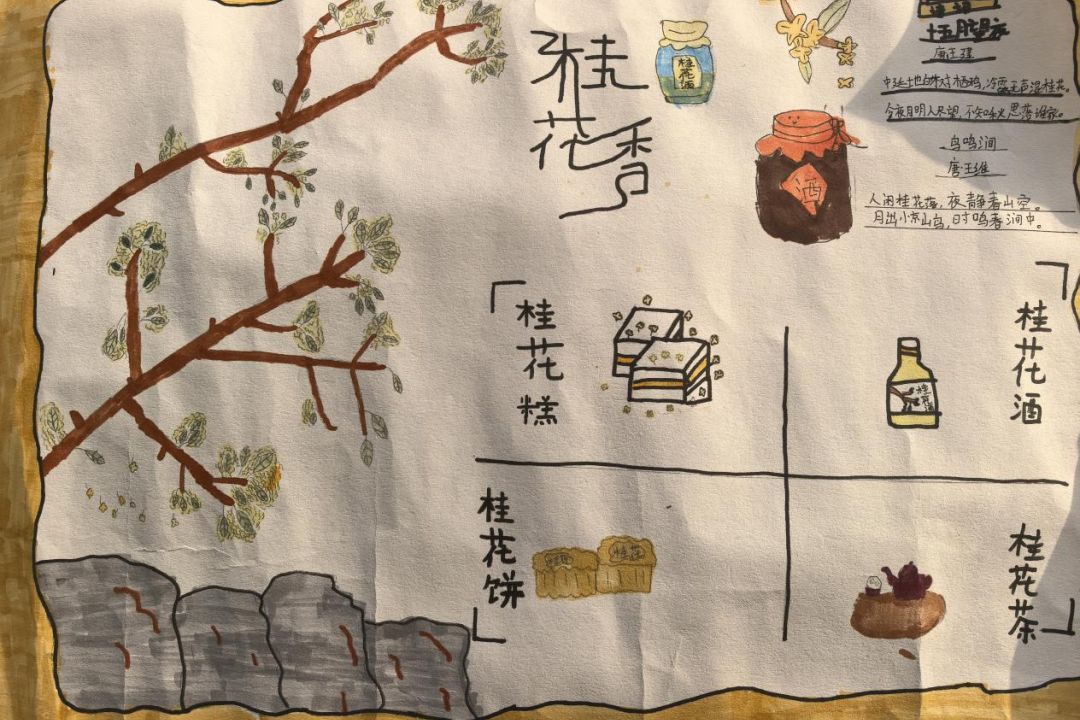 桂花香
桂花酒
酒
唐王建
中庭地白树栖鸦，冷露无声湿桂花。
今夜月明人尽望，不知秋思落谁家。
鸟鸣涧
唐·王维
人闲桂花落，夜静春山空。
月出惊山鸟，时鸣春涧中。
桂花糕
桂花酒
桂花酒
桂花饼
桂花
桂花茶